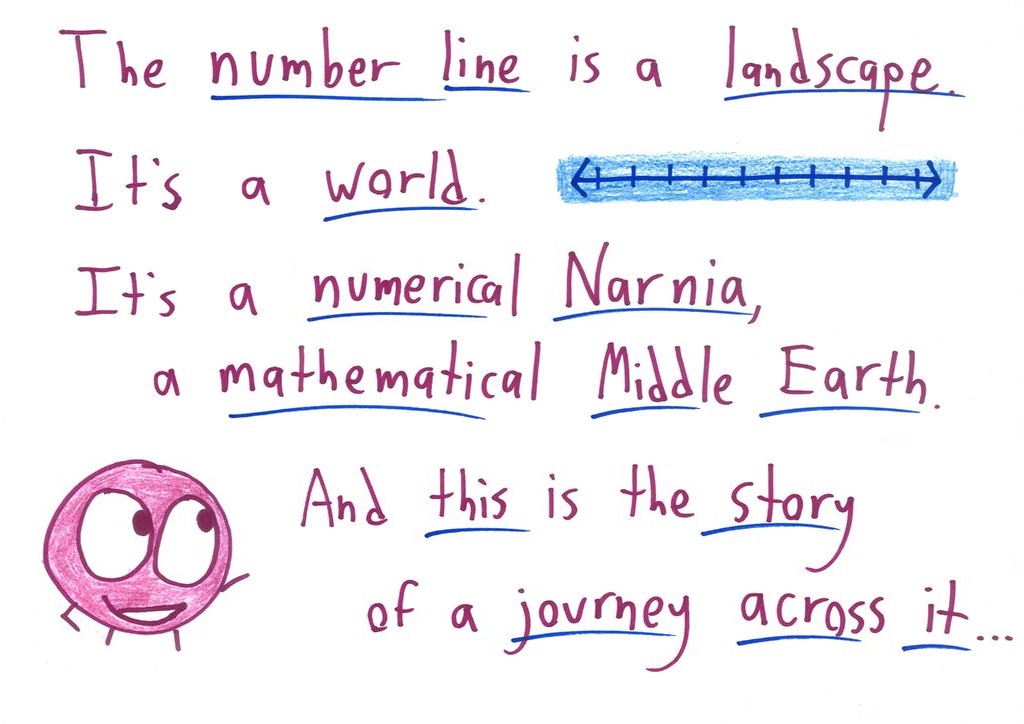 The number line is a landscape.
It's a world.
It's a numerical Narnia,
a mathematical Middle Earth.
And this is the story
of a journey across it...